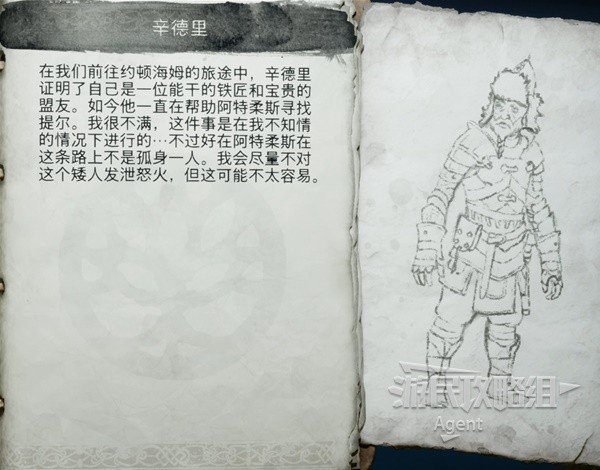 辛德里
在我们前往约顿海姆的旅途中，辛德里
证明了自己是一位能干的铁匠和宝贵的
盟友。如今他一直在帮助阿特柔斯寻找
提尔。我很不满，这件事是在我不知情
的情况下进行的…不过好在阿特柔斯在
这条路上不是孤身一人。我会尽量不对
这个矮人发泄怒火，但这可能不太容易。
游民攻略组
Agent